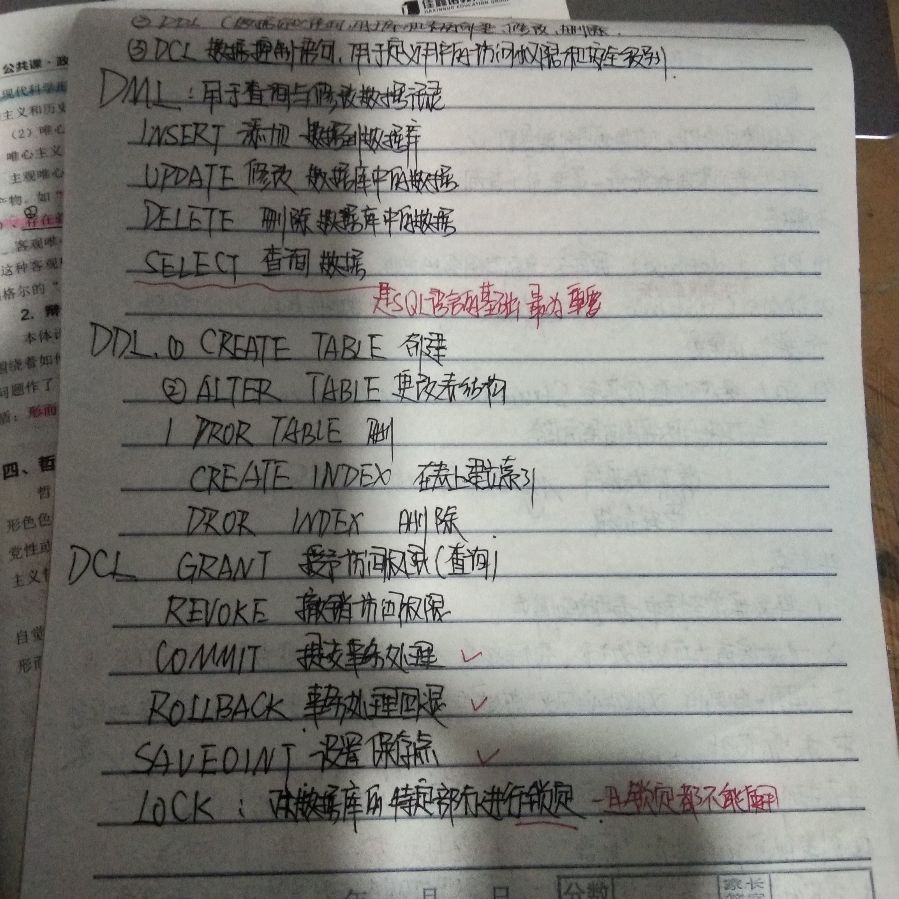 ② DDL (数据定义语句,用于定义表的创建、修改、删除.
③ DCL 数据控制语句,用于定义用户的访问权限和安全级别.
DML:用于查询与修改数据记录
INSERT 添加 数据到数据库
UPDATE 修改 数据库中的数据
DELETE 删除 数据库中的数据
SELECT 查询 数据
是SQL语言的基础 最为重要
DDL. ① CREATE TABLE 创建
② ALTER TABLE 更改表结构
DROR TABLE 删
CREATE INDEX 在表上建立索引
DROR INDEX 删除
DCL GRANT 授予访问权限(查询)
REVOKE 撤销访问权限
COMMIT 提交事务处理 ✓
ROLLBACK 事务处理回滚 ✓
SAVEOINT 设置保存点 ✓
LOCK : 对数据库的特定部分进行锁定 一旦锁定都不能用
年 月 日 分数 家长
公共课·政
现代科学
主义和历史
(2)唯心
唯心主义
主观唯心
产物。如"
存在
客观唯
这种客观
格尔的"
2. 辩
本体
围绕着如
问题作了
盾:形而
四、哲
哲
形色色
党性或
主义
自觉
形而